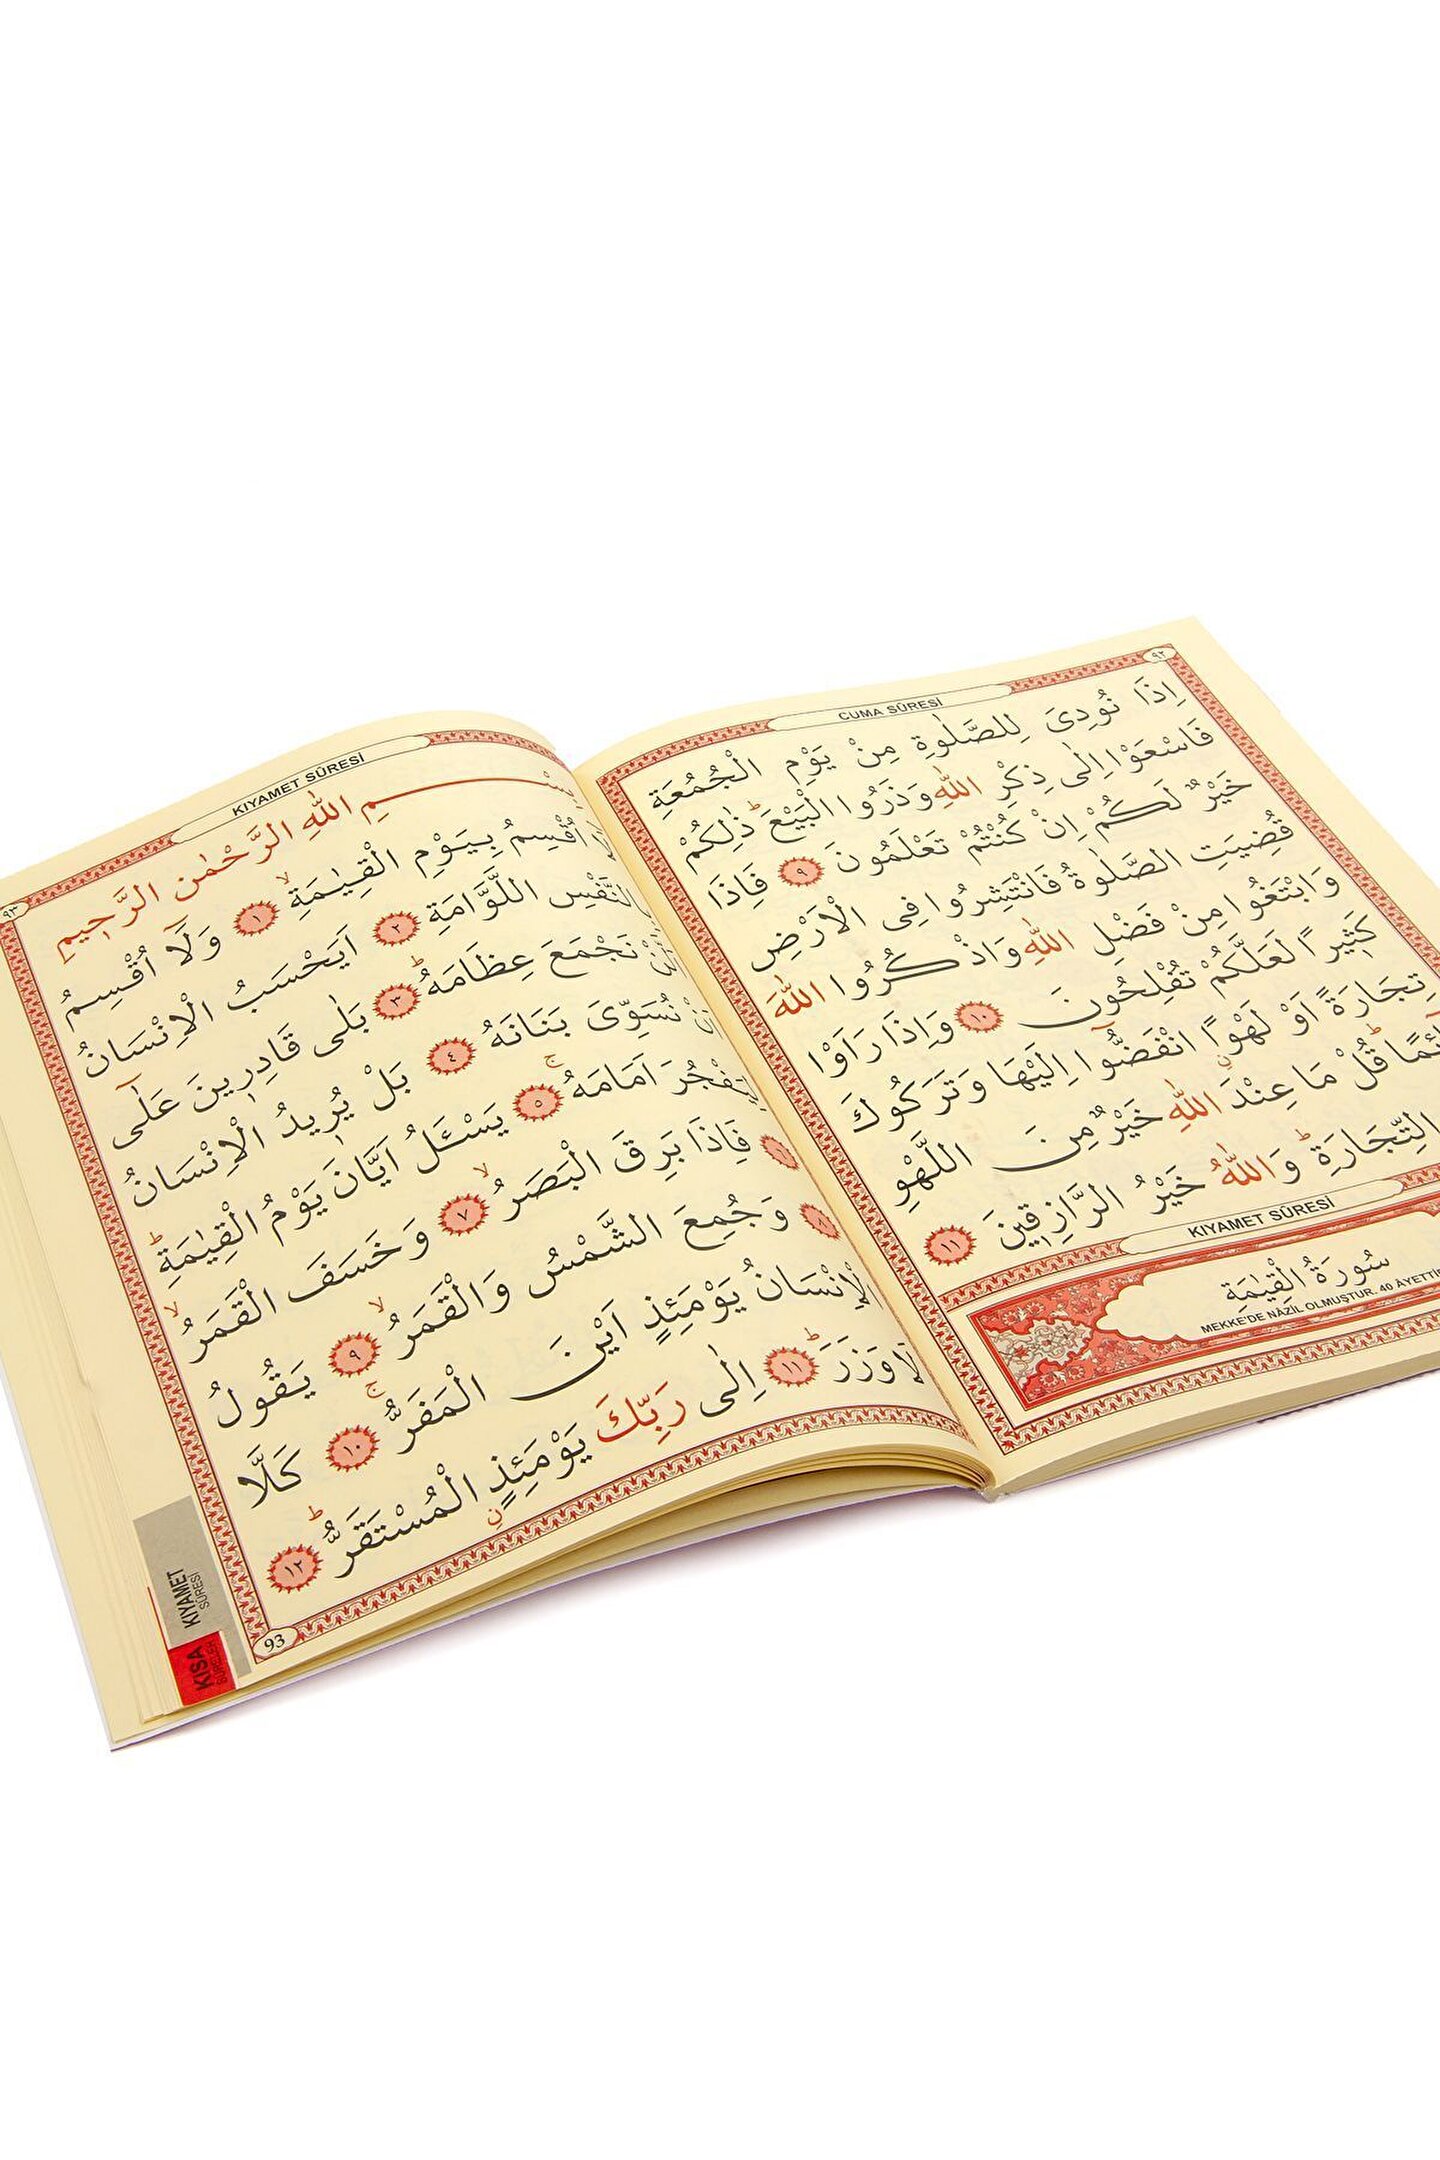 ٩٢
CUMA SÛRESİ
اِذَا نُودِىَ لِلصَّلٰوةِ مِنْ يَوْمِ الْجُمُعَةِ
فَاسْعَوْا اِلٰى ذِكْرِ اللّٰهِ وَذَرُوا الْبَيْعَۜ ذٰلِكُمْ
خَيْرٌ لَكُمْ اِنْ كُنْتُمْ تَعْلَمُونَ ٩ فَاِذَا
قُضِيَتِ الصَّلٰوةُ فَانْتَشِرُوا فِى الْاَرْضِ
وَابْتَغُوا مِنْ فَضْلِ اللّٰهِ وَاذْكُرُوا اللّٰهَ
كَثِيرًا لَعَلَّكُمْ تُفْلِحُونَ ١٠ وَاِذَا رَاَوْا
تِجَارَةً اَوْ لَهْوًا انْفَضُّٓوا اِلَيْهَا وَتَرَكُوكَ
قُلْ مَا عِنْدَ اللّٰهِ خَيْرٌ مِنَ اللَّهْوِ
التِّجَارَةِ وَاللّٰهُ خَيْرُ الرَّازِقِينَ ١١
KIYAMET SÛRESİ
سُورَةُ الْقِيٰمَةِ
MEKKE'DE NÂZİL OLMUŞTUR. 40 ÂYETTİR
٩٣
KIYAMET SÛRESİ
بِسْمِ اللّٰهِ الرَّحْمٰنِ الرَّحِيمِ
لَٓا اُقْسِمُ بِيَوْمِ الْقِيٰمَةِ ١ وَلَٓا اُقْسِمُ
بِالنَّفْسِ اللَّوَّامَةِ ٢ اَيَحْسَبُ الْاِنْسَانُ
اَلَّنْ نَجْمَعَ عِظَامَهُ ٣ بَلٰى قَادِرِينَ عَلٰٓى
اَنْ نُسَوِّىَ بَنَانَهُ ٤ بَلْ يُرِيدُ الْاِنْسَانُ
لِيَفْجُرَ اَمَامَهُ ٥ يَسْـَٔلُ اَيَّانَ يَوْمُ الْقِيٰمَةِ
٦ فَاِذَا بَرِقَ الْبَصَرُ ٧ وَخَسَفَ الْقَمَرُ
٨ وَجُمِعَ الشَّمْسُ وَالْقَمَرُ ٩ يَقُولُ
الْاِنْسَانُ يَوْمَئِذٍ اَيْنَ الْمَفَرُّ ١٠ كَلَّا
لَا وَزَرَ ١١ اِلٰى رَبِّكَ يَوْمَئِذٍ الْمُسْتَقَرُّ ١٢
93
KIYAMET
SÛRESİ
KISA
SÛRELER